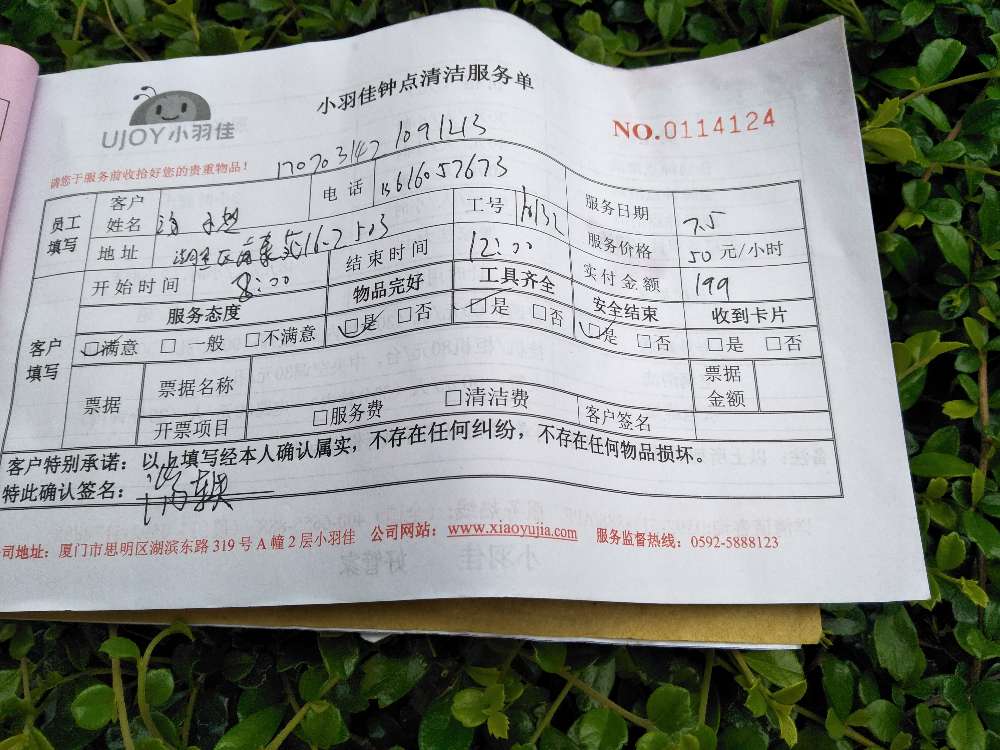 UJOY小羽佳
小羽佳钟点清洁服务单
NO.0114124
请您于服务前收拾好您的贵重物品！
员工填写
客户姓名
电话
服务日期 7.5
地址
工号
服务价格 50 元/小时
开始时间 8:00
结束时间 12:00
实付金额 199
客户填写
服务态度 物品完好 工具齐全 安全结束 收到卡片
□满意 □一般 □不满意 □是 □否 □是 □否 □是 □否 □是 □否
票据 票据名称 票据金额
开票项目 □服务费 □清洁费 客户签名
客户特别承诺：以上填写经本人确认属实，不存在任何纠纷，不存在任何物品损坏。
特此确认签名：
司地址：厦门市思明区湖滨东路 319 号 A 幢 2 层小羽佳 公司网站：www.xiaoyujia.com 服务监督热线：0592-5888123